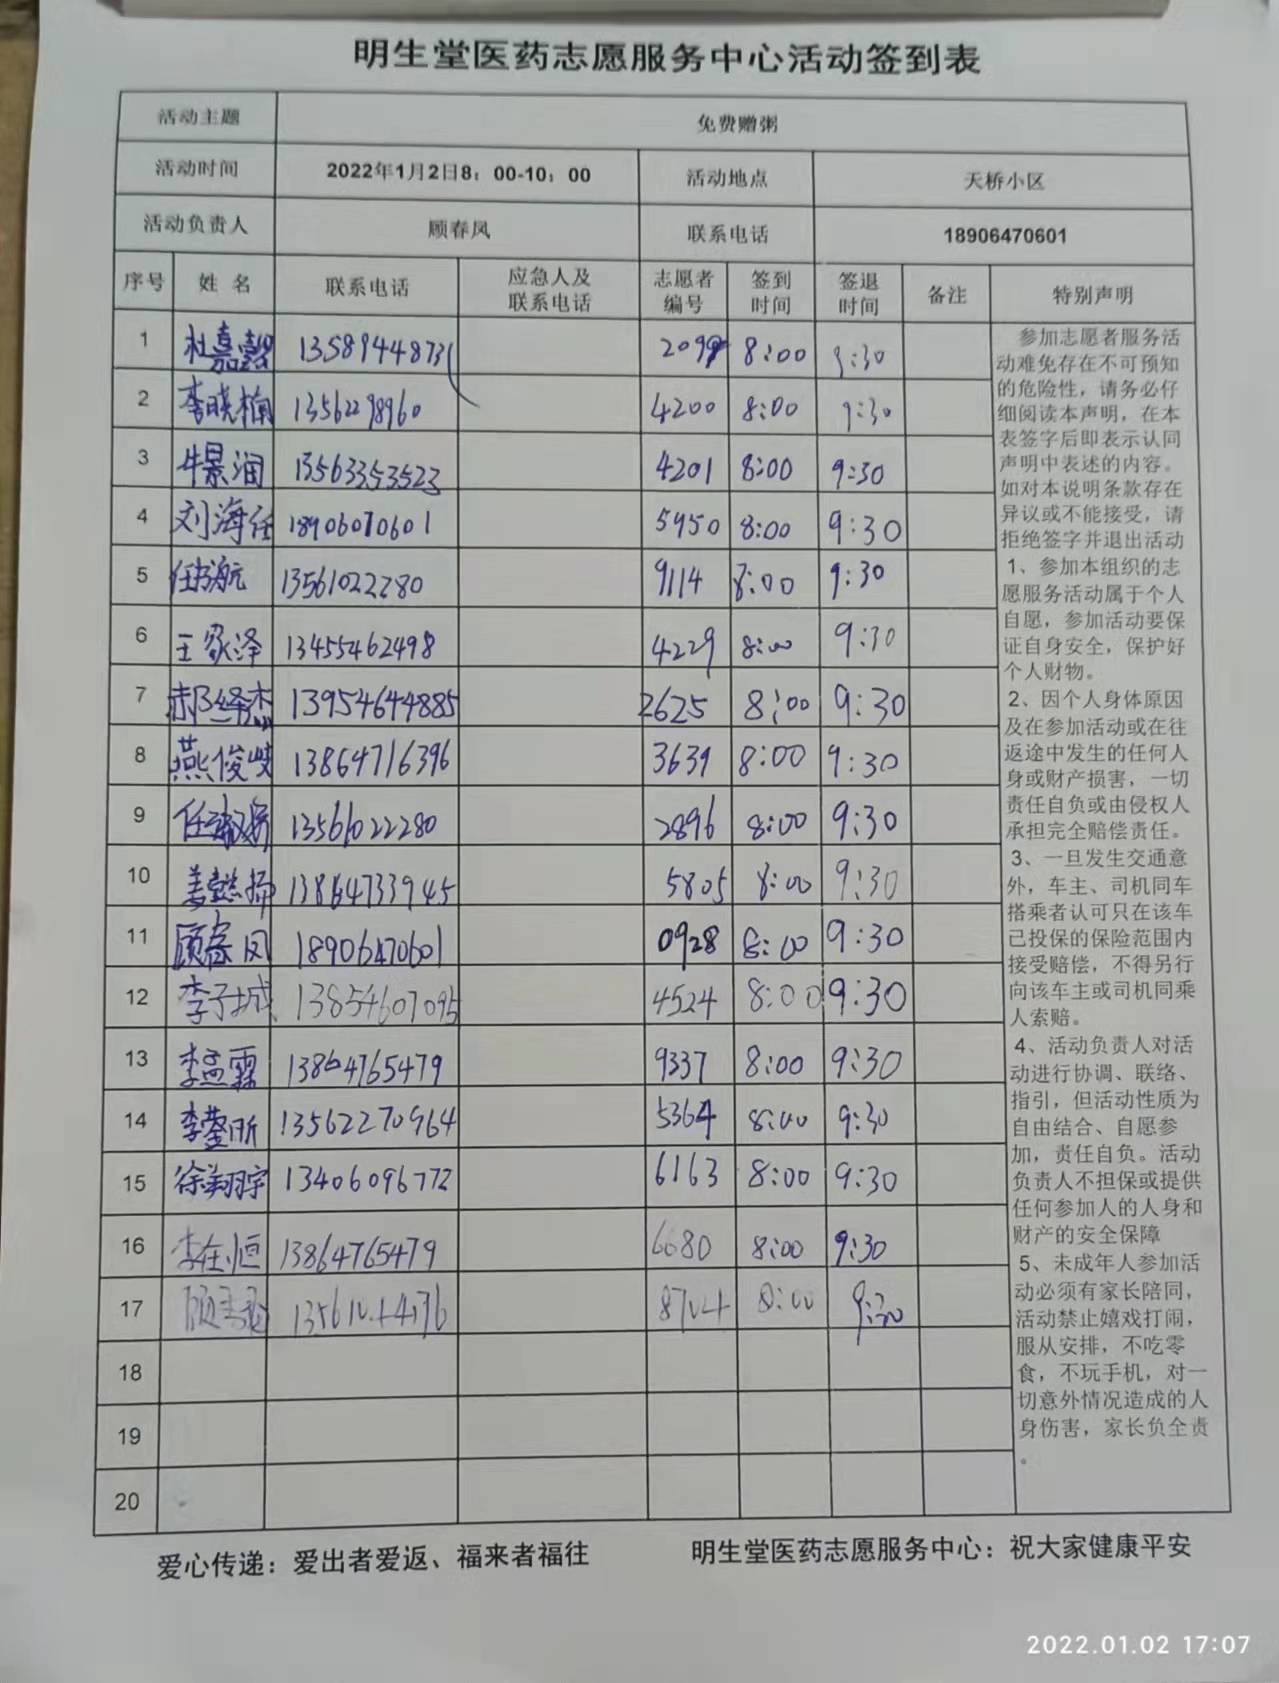 明生堂医药志愿服务中心活动签到表
活动主题 免费赠粥
活动时间 2022年1月2日8：00-10：00 活动地点 天桥小区
活动负责人 顾春凤 联系电话 18906470601
序号 姓 名 联系电话 应急人及联系电话 志愿者编号 签到时间 签退时间 备注 特别声明
1 杜嘉懿 13589448731 8:00 9:30
2 李晓楠 13562298960 4200 8:00 9:30
3 牛景润 13563353523 4201 8:00 9:30
4 刘海任 18906070601 5950 8:00 9:30
5 任航 13561022280 9114 8:00 9:30
6 王家泽 13455462498 4229 8:00 9:30
7 郝绎杰 13954644885 2625 8:00 9:30
8 燕俊岐 13864716396 3639 8:00 9:30
9 任 13561022280 2896 8:00 9:30
10 姜懿扬 13864733945 5805 8:00 9:30
11 顾春凤 18906470601 0928 8:00 9:30
12 李子城 13854607095 4524 8:00 9:30
13 李孟霖 13864765479 9337 8:00 9:30
14 李蓥昕 13562270964 5364 8:00 9:30
15 徐翔宇 13406096772 6163 8:00 9:30
16 李在恒 13864765479 6680 8:00 9:30
17 顾 8704 8:00 9:30
18
19
20
参加志愿者服务活
动难免存在不可预知
的危险性，请务必仔
细阅读本声明，在本
表签字后即表示认同
声明中表述的内容。
如对本说明条款存在
异议或不能接受，请
拒绝签字并退出活动
1、参加本组织的志
愿服务活动属于个人
自愿，参加活动要保
证自身安全，保护好
个人财物。
2、因个人身体原因
及在参加活动或在往
返途中发生的任何人
身或财产损害，一切
责任自负或由侵权人
承担完全赔偿责任。
3、一旦发生交通意
外，车主、司机同车
搭乘者认可只在该车
已投保的保险范围内
接受赔偿，不得另行
向该车主或司机同乘
人索赔。
4、活动负责人对活
动进行协调、联络、
指引，但活动性质为
自由结合、自愿参
加，责任自负。活动
负责人不担保或提供
任何参加人的人身和
财产的安全保障
5、未成年人参加活
动必须有家长陪同，
活动禁止嬉戏打闹，
服从安排，不吃零
食，不玩手机，对一
切意外情况造成的人
身伤害，家长负全责
。
爱心传递：爱出者爱返、福来者福往 明生堂医药志愿服务中心：祝大家健康平安
2022.01.02 17:07